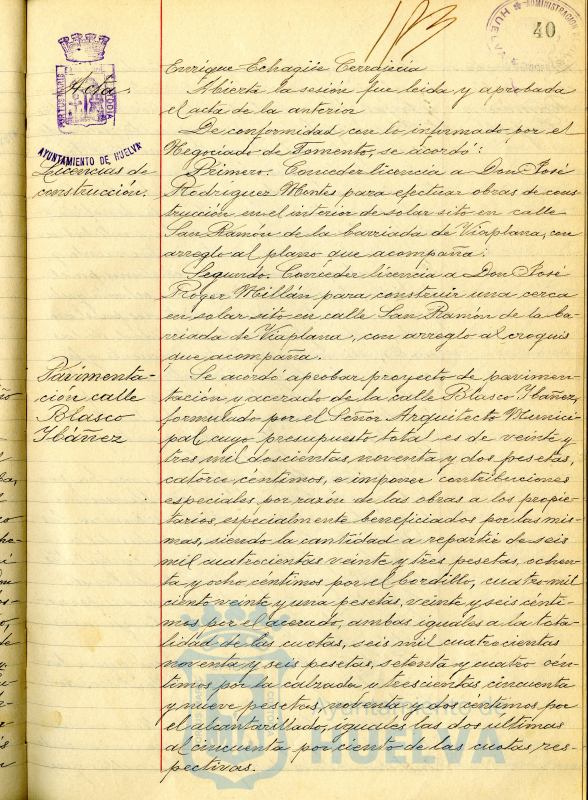 40
Enrique Echagüe Cerrajería
Acta.
Abierta la sesión fue leida y aprobada
el acta de la anterior
De conformidad con lo informado por el
Negociado de Fomento, se acordó:
AYUNTAMIENTO DE HUELVA
Licencias de
construcción.
Primero. Conceder licencia a Don José
Rodriguez Montes para efectuar obras de cons-
trucción en el interior de solar sito en calle
San Ramón de la barriada de Viaplana, con
arreglo al plano que acompaña;
Segundo. Conceder licencia a Don José
Roger Millán para construir una cerca
en solar sito en calle San Ramón de la ba-
rriada de Viaplana, con arreglo al croquis
que acompaña.
Pavimenta-
ción calle
Blasco
Ybáñez
Se acordó aprobar proyecto de pavimen-
tación y acerado de la calle Blasco Ybáñez,
formulado por el Señor Arquitecto Munici-
pal, cuyo presupuesto total es de veinte y
tres mil doscientas, noventa y dos pesetas,
catorce céntimos, e imponer contribuciones
especiales por razón de las obras a los propie-
tarios especialmente beneficiados por las mis-
mas, siendo la cantidad a repartir de seis
mil cuatrocientas veinte y tres pesetas, ochen-
ta y ocho céntimos por el bordillo, cuatro mil
ciento veinte y una pesetas, veinte y seis cénti-
mos por el acerado, ambas iguales a la tota-
lidad de las cuotas, seis mil cuatrocientas
noventa y seis pesetas, setenta y cuatro cén-
timos por la calzada y trescientas cincuenta
y nueve pesetas, noventa y dos céntimos por
el alcantarillado, iguales las dos últimas
al cincuenta por ciento de las cuotas res-
pectivas.
Ayuntamiento
HUELVA